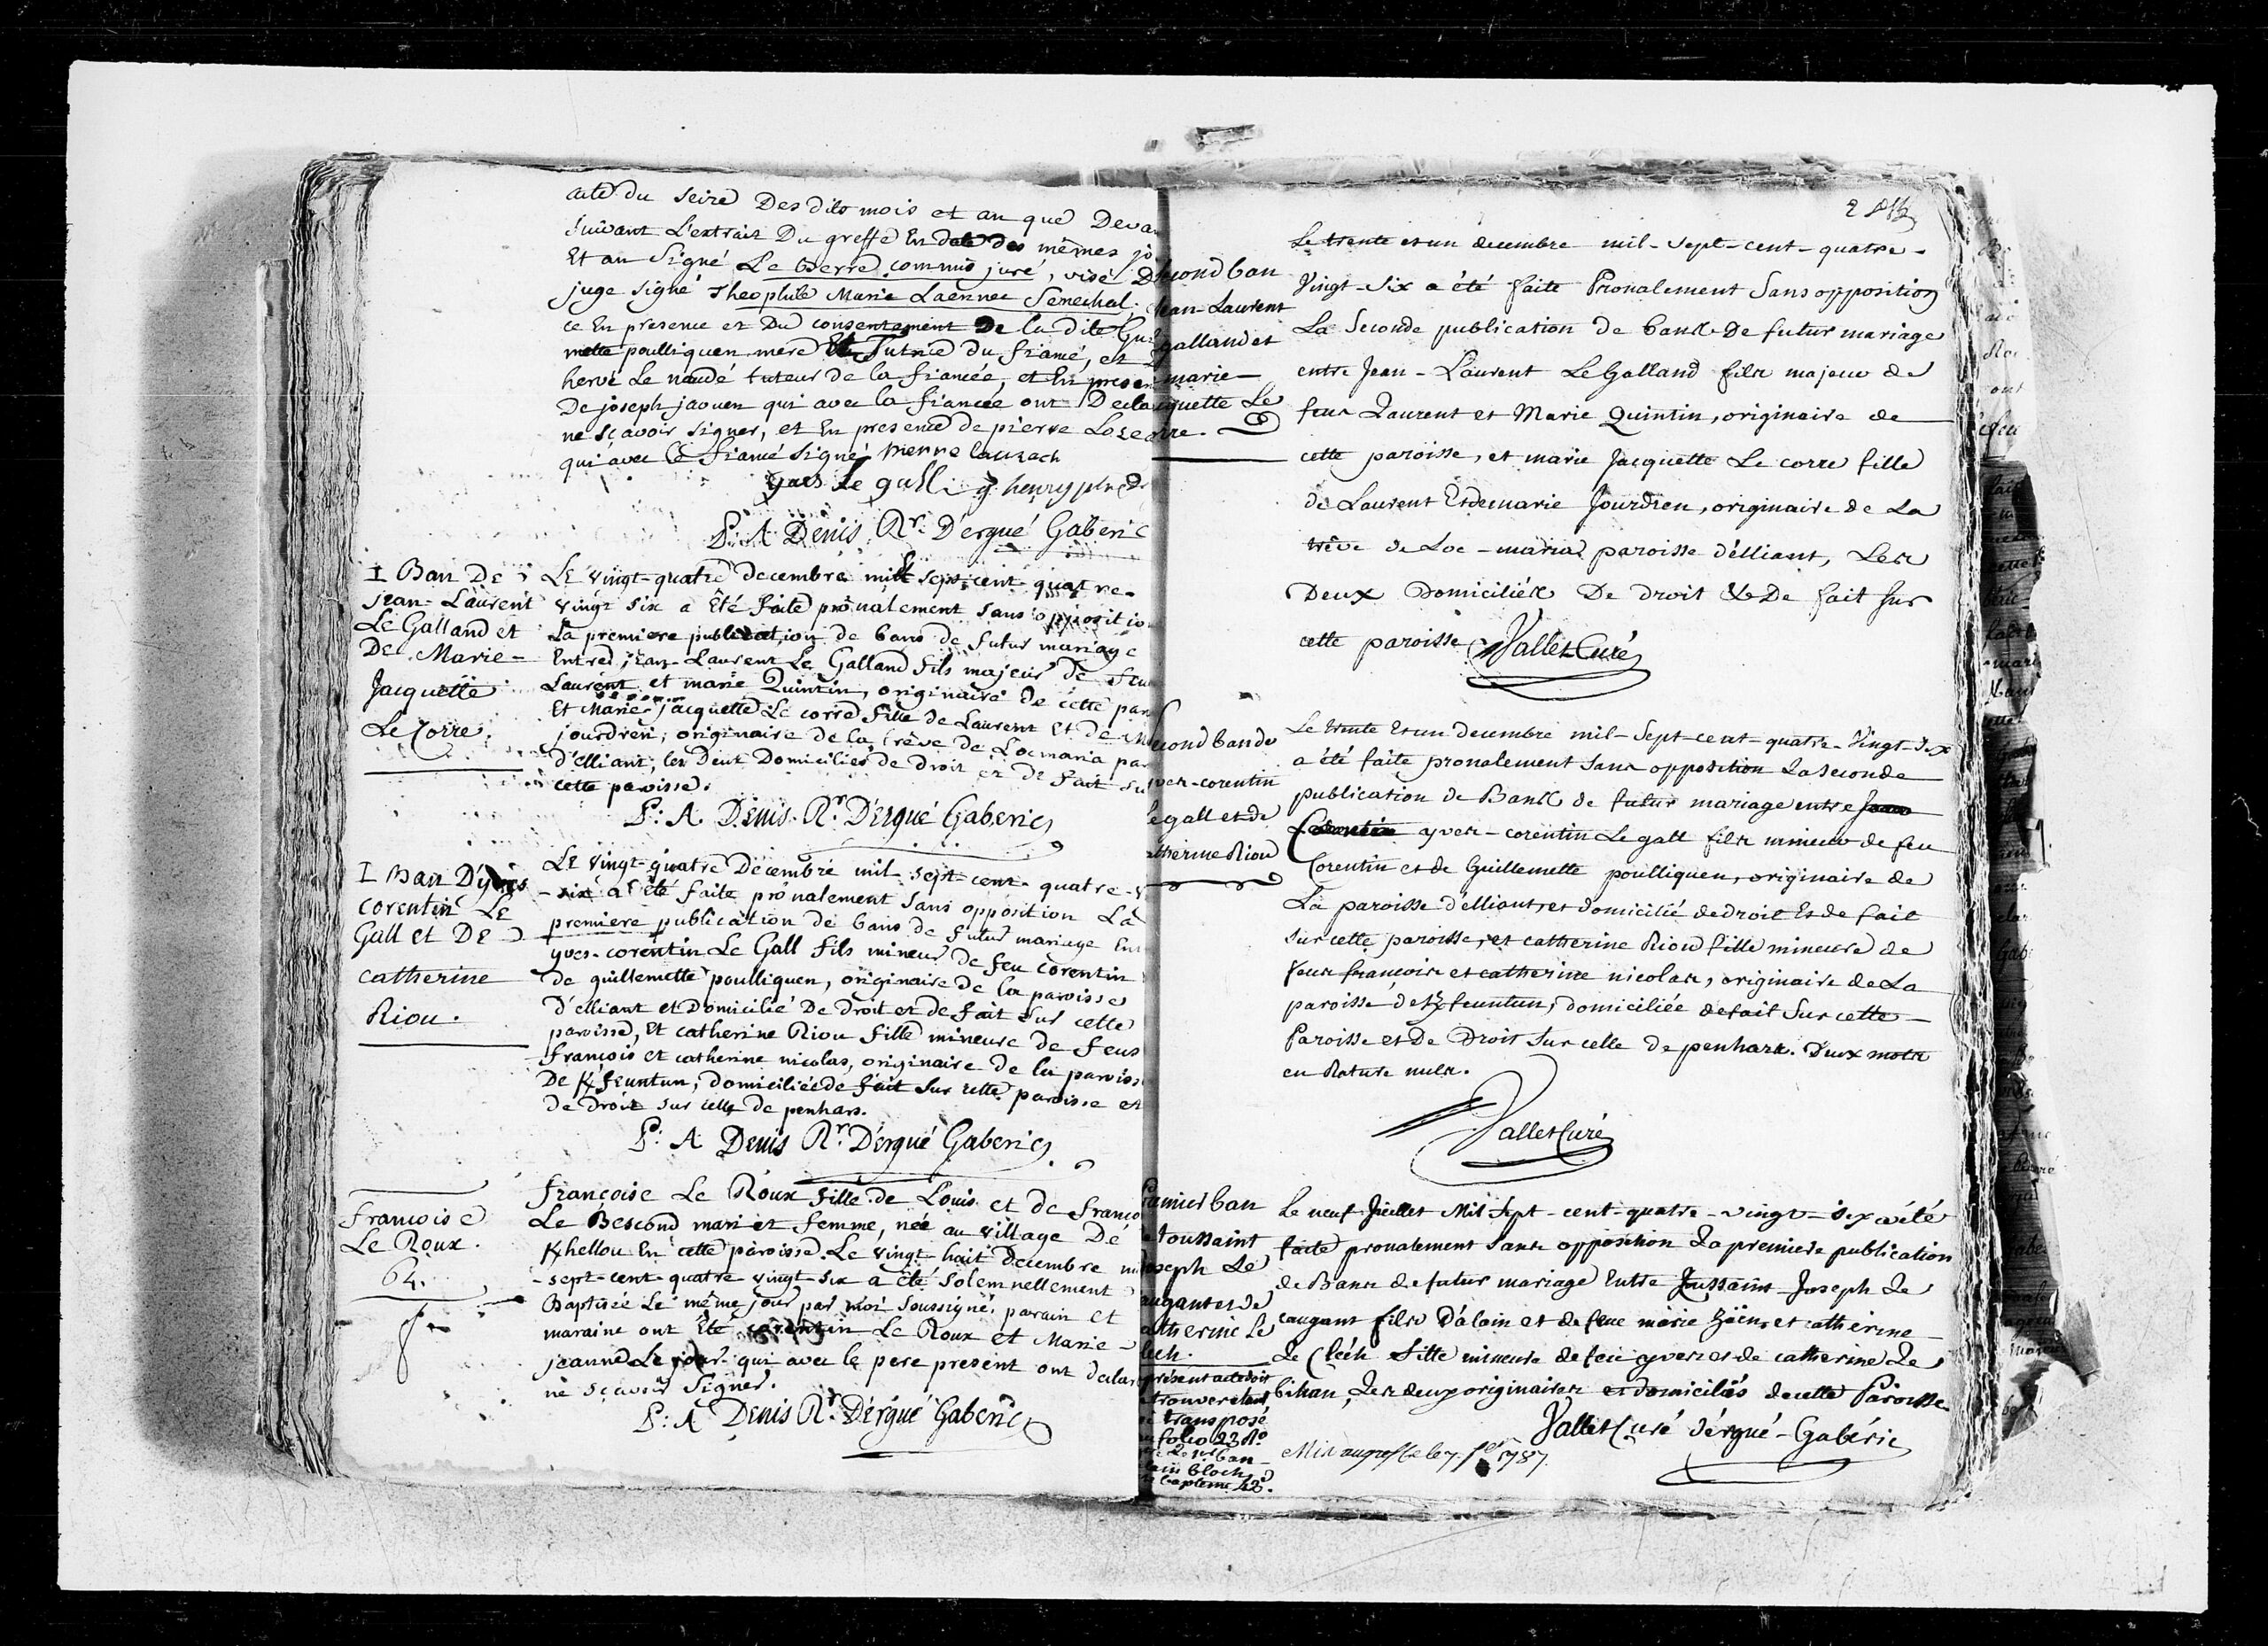 acte du seize Des dits mois et an que Deva
suivant L'extrait Du greffe En date des mêmes jo
Et an Signé Le Berre commis juré, visé D
juge signé Theophile Marie Laennec Senechal;
ce En presence et Du consentement De la dite Gui
mette poulliquen mere Et Tutrice du fiancé, et
hervé Le naudé tuteur de la fiancée, et En presen
De joseph jaouen qui avec la fiancée ont Decla
ne sçavoir signer, et En presence de pierre
qui avec le fiancé signe
yves Le gall g henry
P: A Denis Rr. D'ergué Gaberic
I Ban De
jean-Laurent
Le Galland et
De Marie-
Jacquette
Le Corre.
LE vingt-quatre decembre mil sept-cent-quatre-
vingt six a Êté faite prônalement sans oppositio
La premiere publication de bans de futur mariage
Entre jean-Laurent Le Galland fils majeur de feu
Laurent et marie Quintin, originaire de cette par
Et Marie-jacquette Le corre fille de Laurent Et de
jourdren; originaire de la trêve de Locmaria par
d'elliant; les Deux Domiciliés de Droit et de fait su
cette paroisse.
P: A Denis Rr. D'Ergué Gaberic
I Ban D'yves
corentin LE
Gall et DE
catherine
Riou.
LE vingt-quatre Décembre mil-sept-cent-quatre-v
-six a été faite prônalement sans opposition La
premiere publication de bans de futur mariage En
yves-corentin Le Gall fils mineur de feu corentin
de guillemette poulliquen, originaire de la paroisse
D'elliant et Domicilié De Droit et de fait sur cette
paroisse, Et catherine Riou fille mineure de feus
françois et catherine nicolas, originaire de la paroiss
De Kfeuntun; domiciliée de fait sur cette paroisse et
de Droit sur celle de penhars.
P: A Denis Rr. D'ergué Gaberic
françoise
Le Roux.
64.
françoise Le Roux fille de Louis et de franço
Le Bescond mari et femme, née au village De
Khellou En cette paroisse. Le vingt-huit Decembre mi
-sept-cent-quatre vingt-six a été solemnellement
Baptisée Le même jour par moi soussigné; parain et
maraine ont Êté corentin Le Roux et Marie-
jeanne Le qui avec le pere present ont declar
ne sçavoir signer.
P: A Denis Rr. D'ergué Gaberic
second ban
Jean-Laurent
galland et
marie-
cquette Le
orre.
Le trente et un decembre mil-sept-cent-quatre-
Vingt-Six a été faite Pronalement Sans opposition
La Seconde publication de bans De futur mariage
entre Jean-Laurent LeGalland fils majeur de
feus Laurent et Marie Quintin, originaire de
cette paroisse, et marie Jacquette Le corre fille
de Laurent Et de marie Jourdren, originaire de La
trêve de Loc-maria paroisse d'élliant, Les
Deux Domiciliés De Droit & De fait sur
cette paroisse Vallet Curé
econd ban de
yves-corentin
Le gall et de
atherine Riou
Le trente Et un decembre mil-Sept-cent-quatre-Vingt-Six
a été faite pronalement Sans opposition La Seconde
publication de Bans de futur mariage entre Jean
Corentin yves-corentin Le gall fils mineur de feu
Corentin et de Guillemette poulliquen, originaire de
La paroisse d'élliant, et domicilié de droit Et de fait
sur cette paroisse, et catherine Riou fille mineure de
feus françois et catherine nicolas, originaire de La
paroisse de Kfeuntun, domiciliée de fait Sur cette
Paroisse et De Droit Sur celle de penhars. Deux mots
en Rature nuls.
Vallet Curé
remier ban
toussaint
oseph Le
augant et de
atherine Le
lech.
Le neuf Juillet Mil Sept-cent-quatre-vingt-six a été
faite pronalement Sans opposition La premiere publication
de Bans de futur mariage Entre Toussaint Joseph Le
caugant fils D'alain et de feue marie et catherine
Le Cléch fille mineure de feu yves et de catherine Le
bihan, Les deux originaires et domiciliés de cette Paroisse.
Vallet Curé d'érgué-Gabéric
present acte doit
trouver
transposé
folio 23 Ro
ban
bloch,
bapteme 42.
Mis au greffe le 7. 1787.